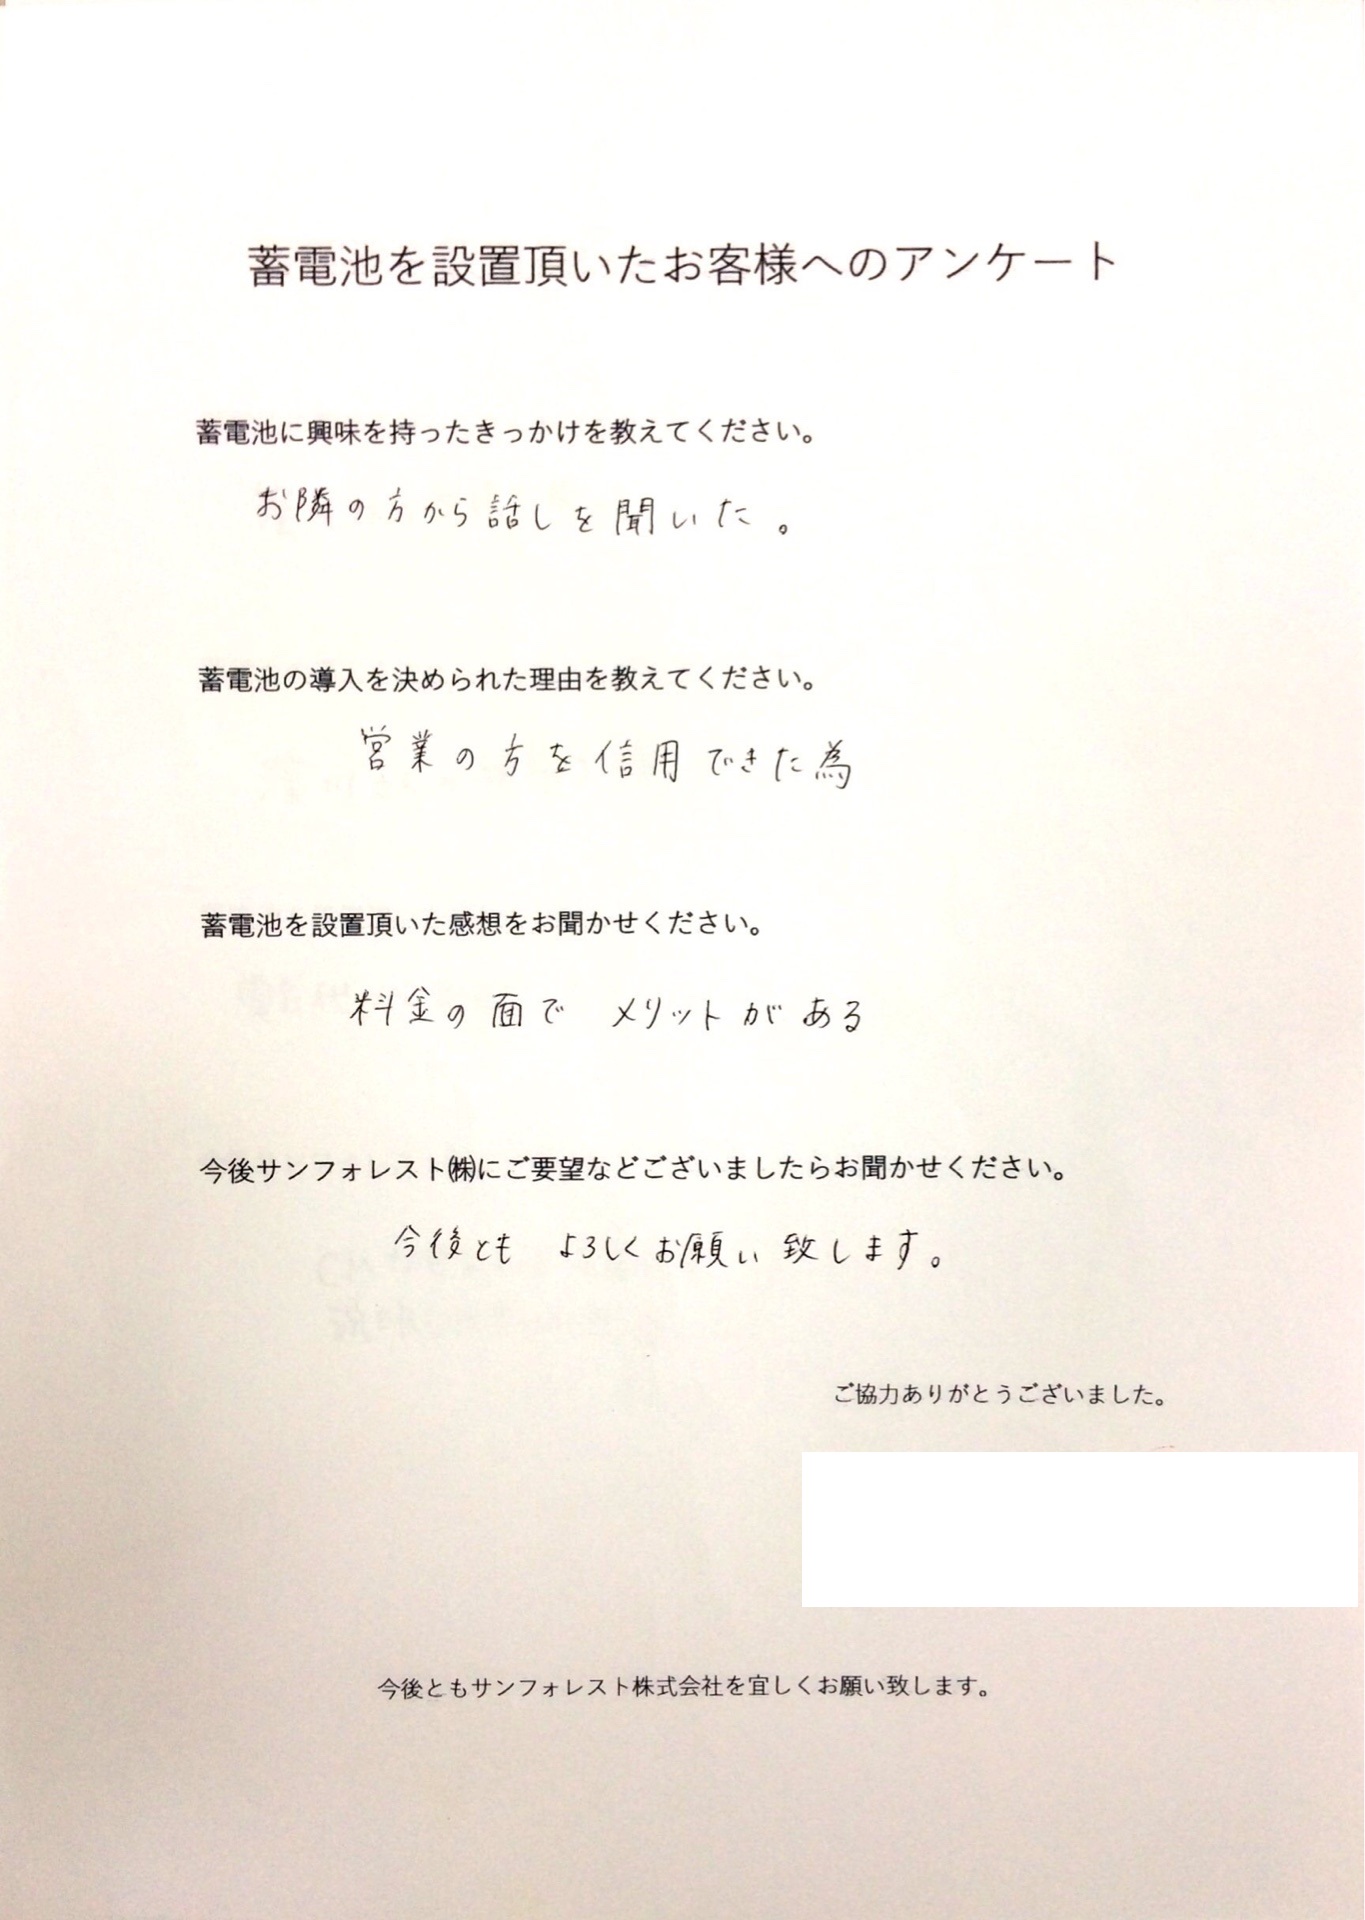 蓄電池を設置頂いたお客様へのアンケート
蓄電池に興味を持ったきっかけを教えてください。
お隣の方から話しを聞いた。
蓄電池の導入を決められた理由を教えてください。
営業の方を信用できた為
蓄電池を設置頂いた感想をお聞かせください。
料金の面で メリットがある
今後サンフォレスト㈱にご要望などございましたらお聞かせください。
今後とも よろしくお願い致します。
ご協力ありがとうございました。
今後ともサンフォレスト株式会社を宜しくお願い致します。